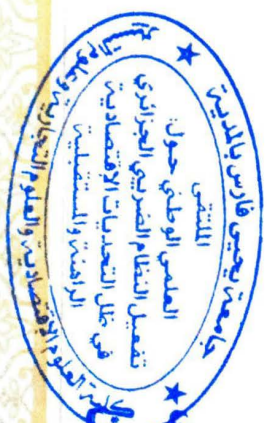 جامعة يحيى فارس بالمدية
الملتقى
العلمي الوطني حول:
تفعيل النظام الضريبي الجزائري
في ظل التحديات الاقتصادية
الراهنة والمستقبلية
كلية العلوم الاقتصادية والعلوم التجارية وعلوم التسيير